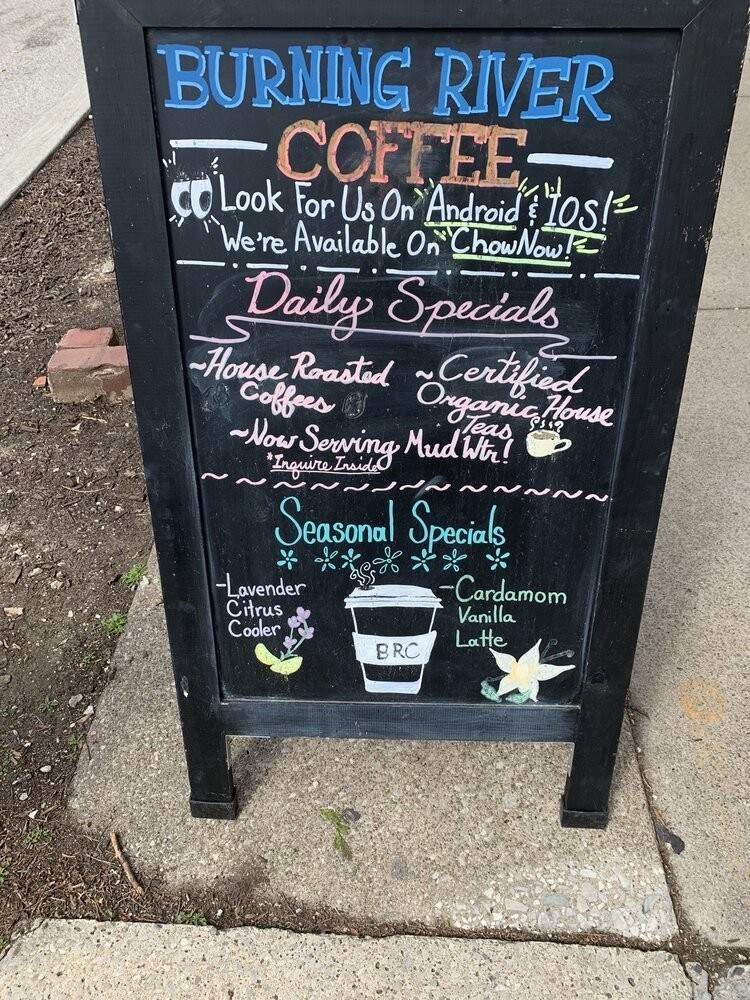 BURNING RIVER
COFFEE
Look For Us On Android & IOS!
We're Available On ChowNow!
Daily Specials
~House Roasted
Coffees
~Certified
Organic House
Teas
~Now Serving Mud Wtr!
*Inquire Inside
Seasonal Specials
-Lavender
Citrus
Cooler
BRC
-Cardamom
Vanilla
Latte